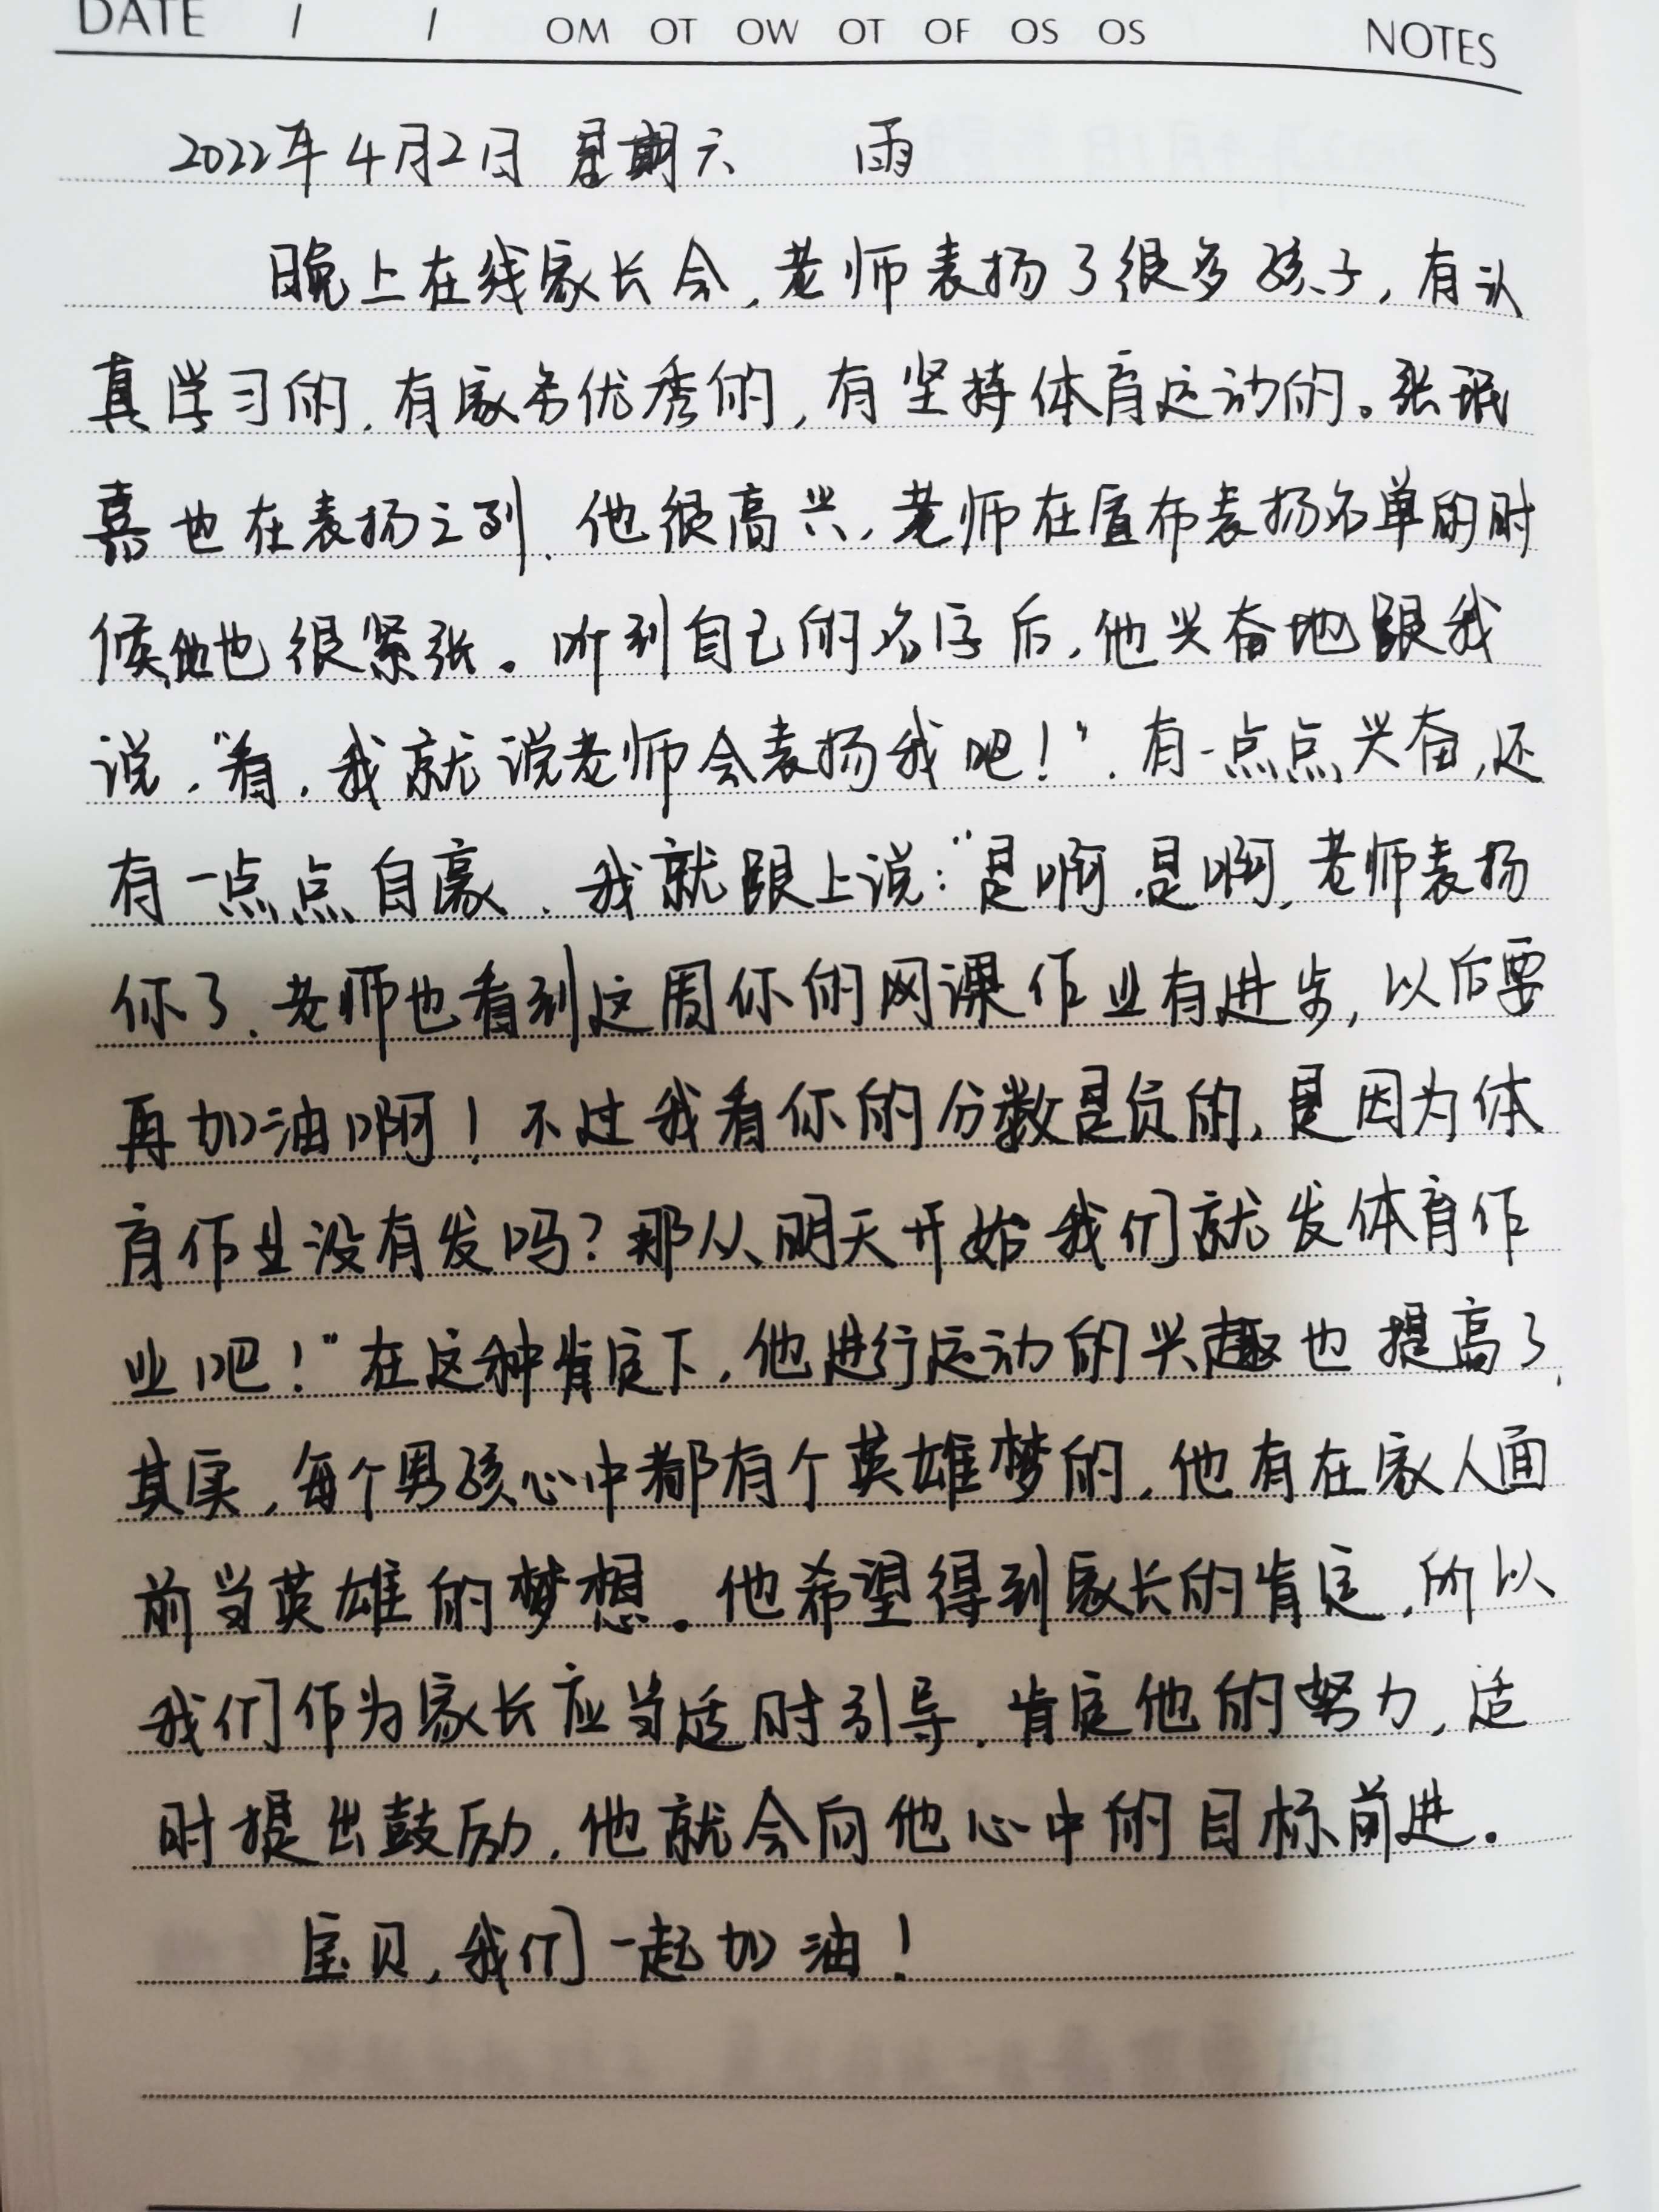 DATE / / OM OT OW OT OF OS OS NOTES
2022年4月2日 星期六 雨
晚上在线家长会,老师表扬了很多孩子,有认
真学习的,有家务优秀的,有坚持体育运动的。张珉
熹也在表扬之列,他很高兴,老师在宣布表扬名单的时
候,他也很紧张。听到自己的名字后,他兴奋地跟我
说,“看,我就说老师会表扬我吧!”,有一点点兴奋,还
有一点点自豪,我就跟上说:“是啊,是啊,老师表扬
你了,老师也看到这周你的网课作业有进步,以后要
再加油啊!不过我看你的分数是负的,是因为体
育作业没有发吗?那从明天开始我们就发体育作
业吧!”在这种肯定下,他进行运动的兴趣也提高了,
其实,每个男孩心中都有个英雄梦的,他有在家人面
前当英雄的梦想。他希望得到家长的肯定,所以
我们作为家长应当适时引导,肯定他的努力,适
时提出鼓励,他就会向他心中的目标前进。
宝贝,我们一起加油!